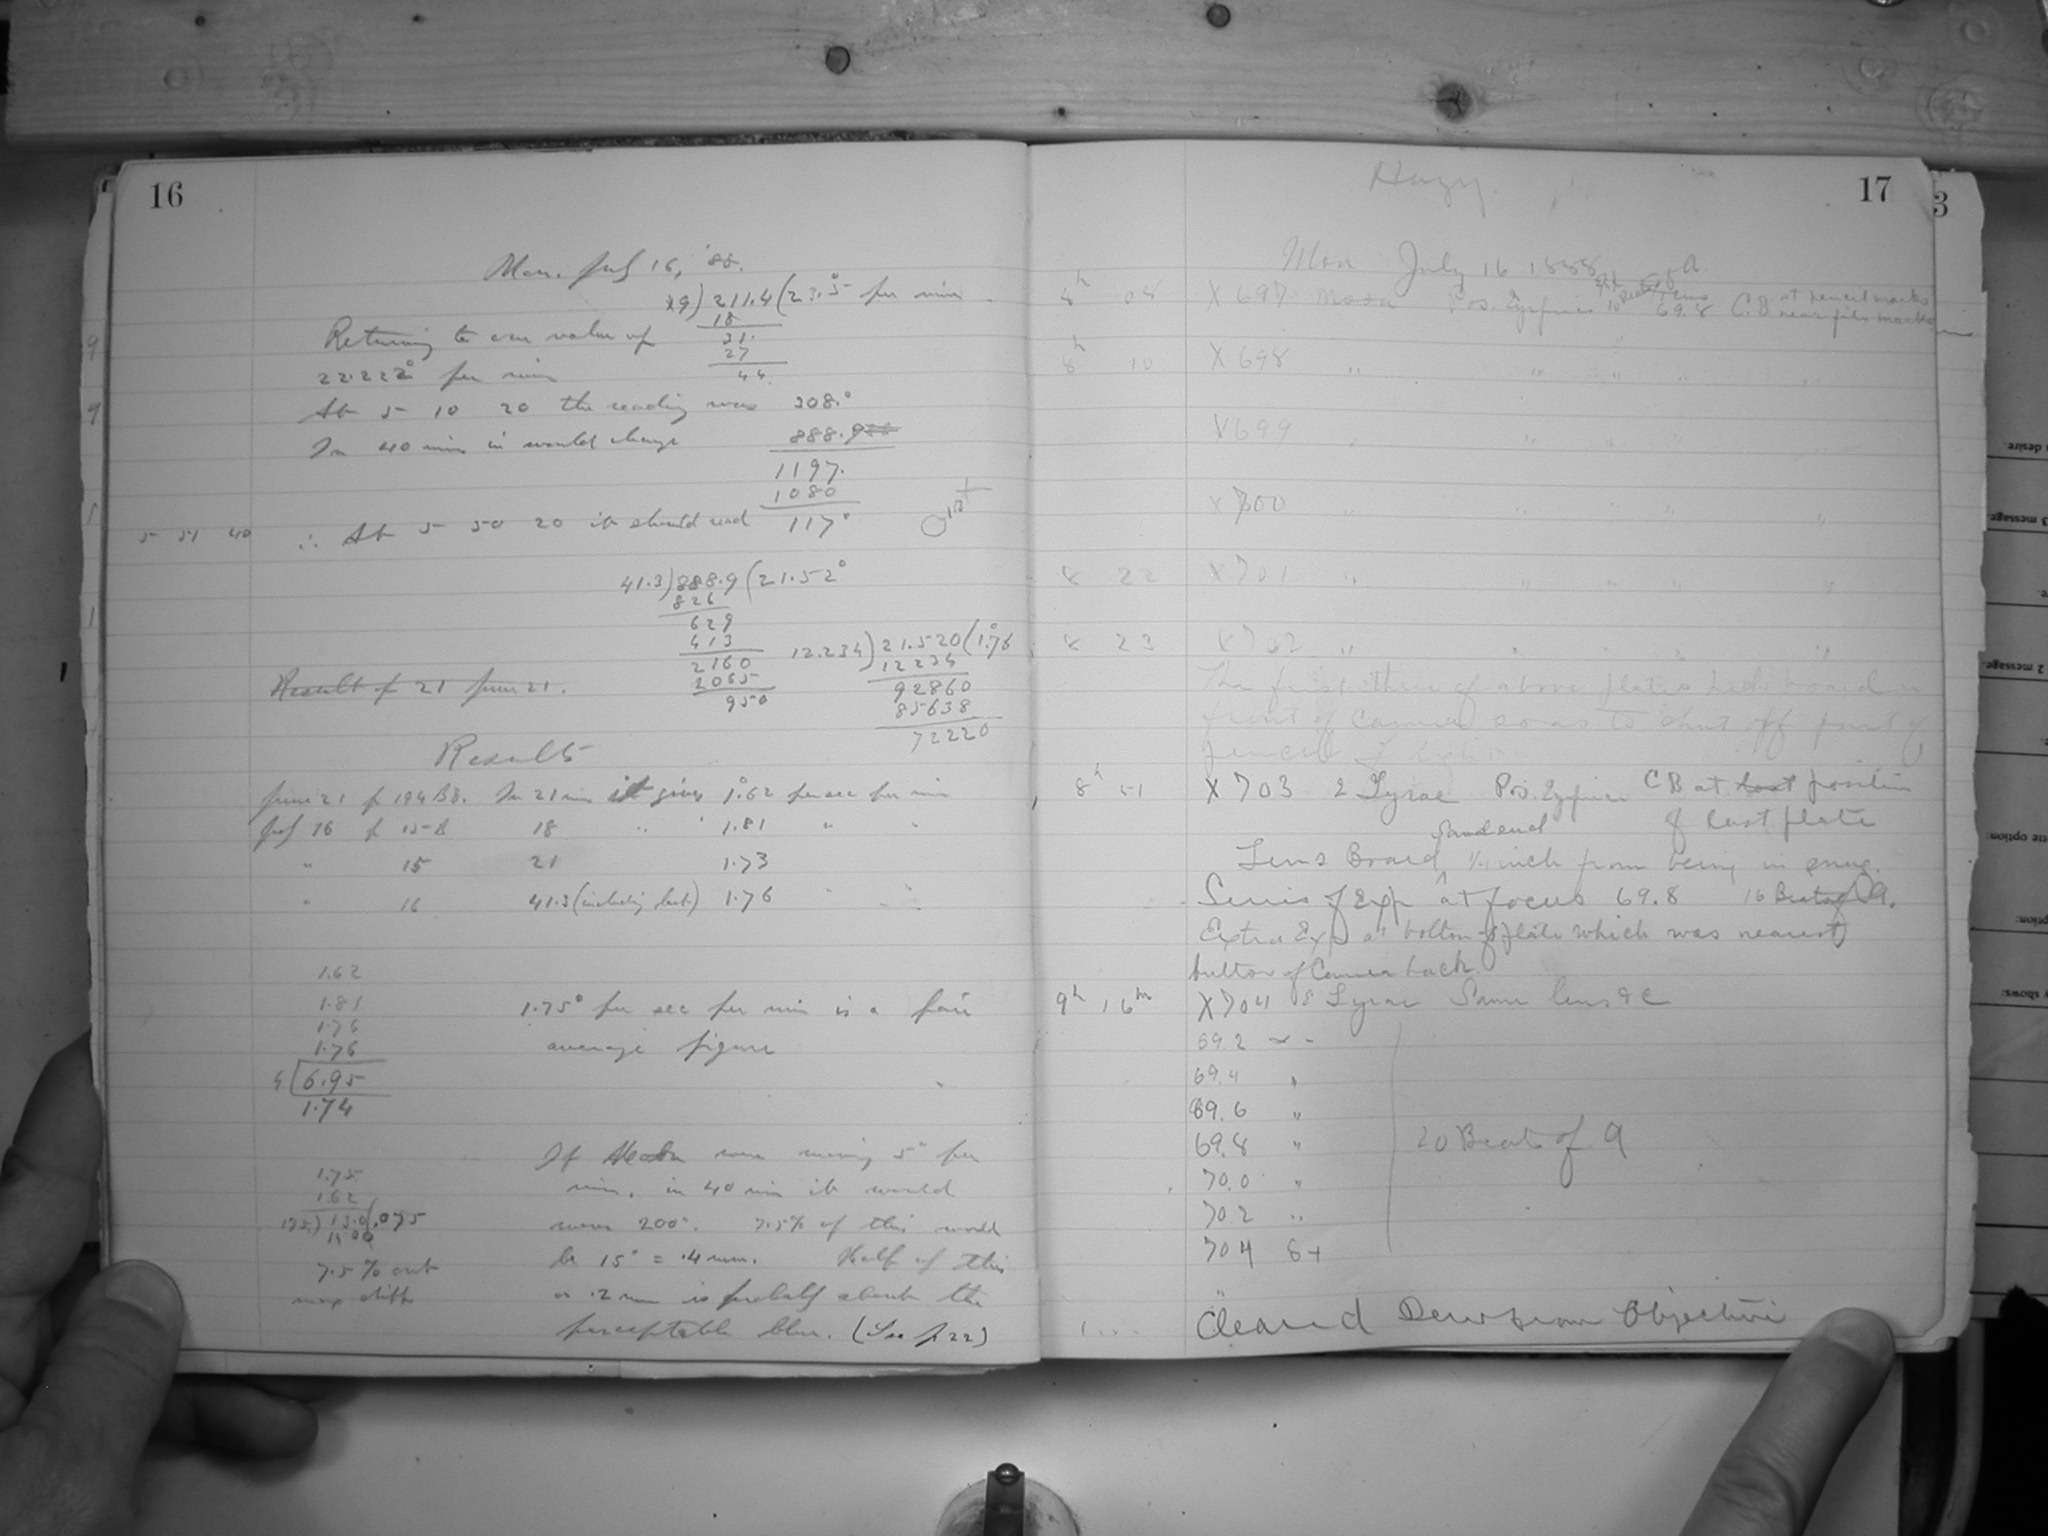 16
Mon. July 16, '88.
x9) 211.4 (23.5° per min
18
Returning to our value of
31.
27
22.222° per min
44
At 5 10 20 the reading was 308.°
In 40 min it would change 888.9
1197.
1080
5 51 40 ∴ At 5 50 20 it should read 117°
41.3) 888.9 (21.52°
826
629
413
2160
2065
950
12.234) 21.520 (1.°76
12234
92860
85638
72220
Result of 21 June 21.
Results
June 21 p 194 B8. In 21 min it gives 1.°62 per sec per min
July 16 p 15 18 " " 1.81 " "
" 15 21 1.73
" 16 41.3 (including last) 1.76 " "
1.62
1.81
1.76
1.76
4 6.95
1.74
1.75° per sec per min is a fair
average figure
1.75
1.62
175) 13.0 (.075
7.5% out
max diff
If were moving 5° per
min, in 40 min it would
move 200°. 7.5% of this would
be 15° = .4 mm. Half of this
or .2 mm is probably about the
perceptable blur. (See p 22)
17
3
Hazy.
Mon July 16 1888
8h 08 X 697 Moon Pos. Eyepiece 69.8 C.B at pencil marks
8h 10 X 698 " " " " "
X 699 " " " " "
X 700 " " " " "
8 22 X 701 " " " " "
8 23 X 702 " " " "
The first three of above plates had board in
front of Camera so as to shut off part of
pencil of light
8h 51 X 703 ε Lyrae Pos. Eyepiece C B at position
of last plate
Lens Board 1/4 inch from being in snug.
Series of Exp at focus 69.8 16 Beats of 9.
Extra Exp at bottom of plate which was nearest
button of Camera back.
9h 16m X 704 ε Lyrae Same lens &c
69.2
69.4 "
69.6 "
69.8 " 20 Beats of 9
70.0 "
70.2 "
70.4
Cleaned Dew from Objective